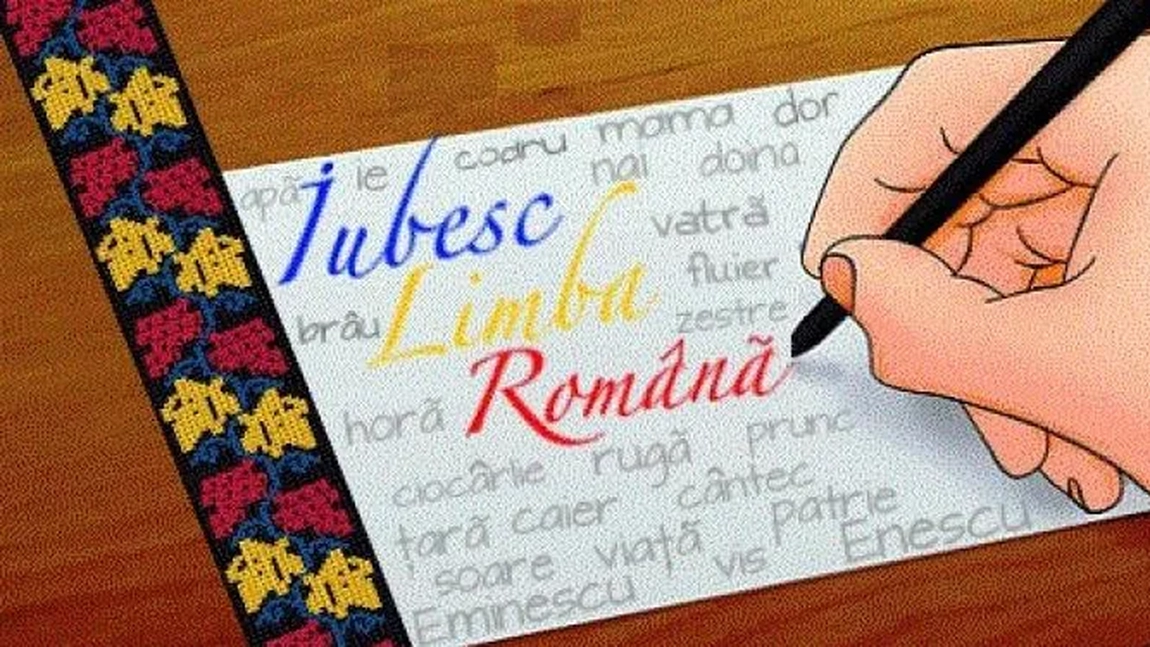 apă ie codru mama dor
nai doina
Iubesc
vatră
Limba
fluier
brâu
zestre
Română
horă
prunc
ciocârlie rugă
cântec
țară caier
patrie
soare viață
Enescu
vis
Eminescu